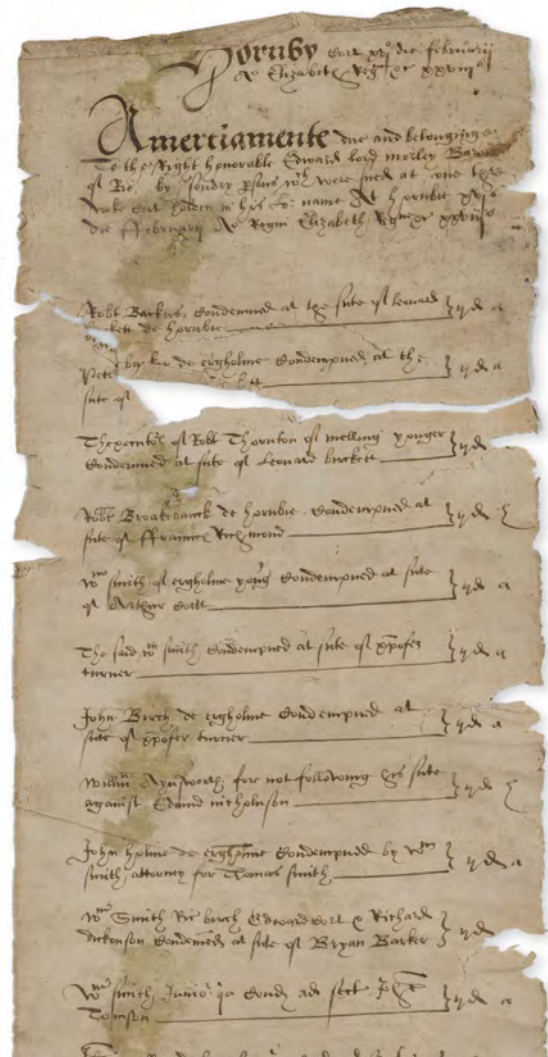 Hornby Cort xvjo die februarii
Ao Elizabeth Reg xxviijo
Amerciamente due and belonginge
To the Right honorable Edward lord morley Baron
of Rie, by sondry psons wch were sued at one thre
weke Cort holden in his Lo: name At hornbie xvjo
die ffebruarij Ao Regni Elizabeth Regine xxviijo
Robt Backus Condemned at the sute of leonard
de hornbie ijd a
de ergholme Condempned at the ijd a
sute of
Thexecutrs of Robt Thornton of melling yonger
Condemned at sute of Leonard birckett ijd
Robt Broakbanck de hornbie Condempned at
sute of ffrancis Richmond ijd
Wm smith of ergholme yong Condempned at sute
of Arthur Cort ijd a
The said wm smith Condempned at sute of xpofer
turner ijd a
John Birch de ergholme Condempned at
sute of xpofer turner ijd a
Willm Aynsworth for not following his sute
against Edmud nicholnson ijd
John holme de ergholme Condempned by wm
smith attorney for Thomas smith ijd a
Wm Smith Ric birch Edward Cort & Richard
dickonson Condemned at sute of Bryan Barker ijd
Wm smith Junior qr Cond ad sect
Tomson ijd a